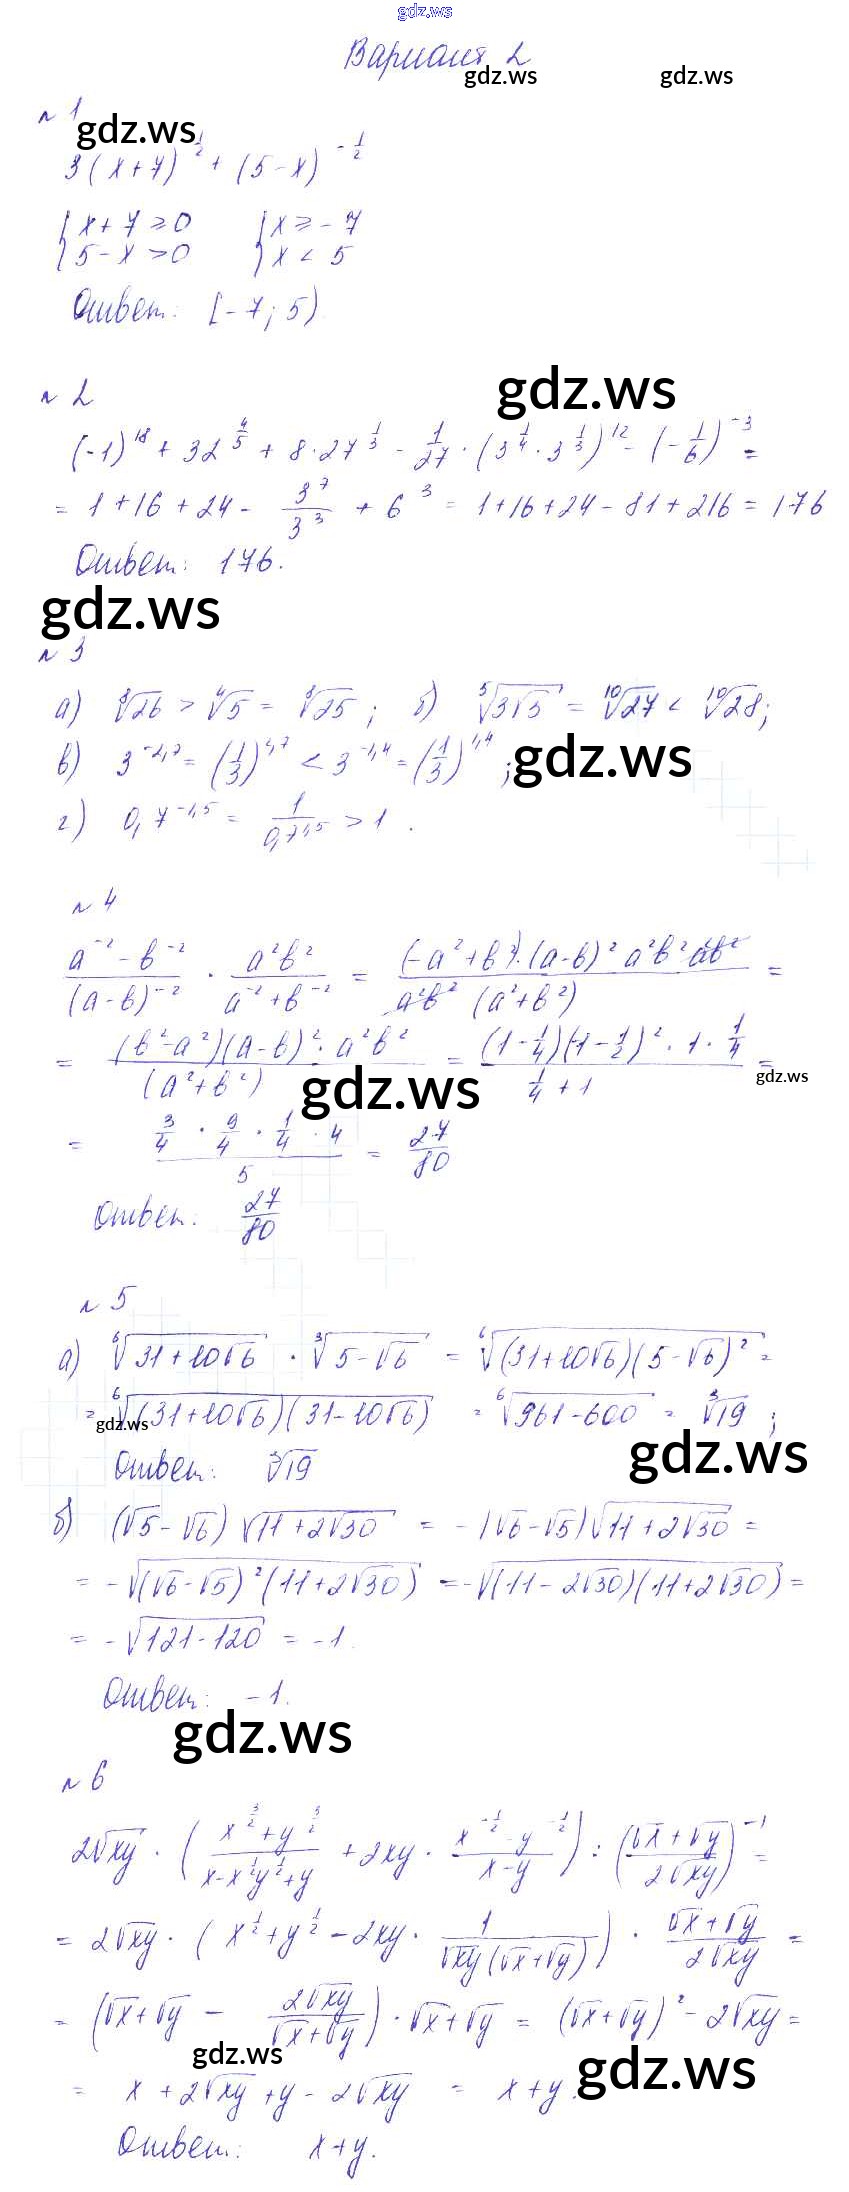 gdz.ws
Вариант 2
gdz.ws gdz.ws
№ 1
gdz.ws
3(x+7)^{1/2} + (5-x)^{-1/2}
{x+7≥0 {x≥-7
{5-x>0 {x<5
Ответ: [-7; 5).
gdz.ws
№ 2
(-1)^{18} + 32^{4/5} + 8·27^{1/3} - 1/27·(3^{1/4}·3^{1/3})^{12} - (-1/6)^{-3} =
= 1+16+24 - 3^7/3^3 + 6^3 = 1+16+24-81+216 = 176
Ответ: 176.
gdz.ws
№ 3
а) ∛26 > ... = ∛25; б) ⁵√(3√3) = ¹⁰√27 < ¹⁰√28;
в) 3^{-1,7} = (1/3)^{1,7} < 3^{-1,4} = (1/3)^{1,4};
gdz.ws
г) 0,7^{-1,5} = 1/0,7^{1,5} > 1.
№ 4
(a^{-2}-b^{-2})/(a-b)^{-2} · a²b²/(a^{-2}+b^{-2}) = (-a²+b²)·(a-b)² a²b² a²b²/(a²b²(a²+b²)) =
= (b²-a²)(a-b)²·a²b²/(a²+b²) = (1-1/4)(-1-1/2)²·1·1/4/(1/4+1) =
gdz.ws
gdz.ws
= (3/4·9/4·1/4·4)/5 = 27/80
Ответ: 27/80
№ 5
а) ⁶√(31+10√6) · ∛(5-√6) = ⁶√((31+10√6)(5-√6)²) =
= ⁶√((31+10√6)(31-10√6)) = ⁶√(961-600) = ∛19;
gdz.ws
gdz.ws
Ответ: ∛19
б) (√5-√6)√(11+2√30) = -(√6-√5)√(11+2√30) =
= -√((√6-√5)²(11+2√30)) = -√((11-2√30)(11+2√30)) =
= -√(121-120) = -1.
Ответ: -1.
gdz.ws
№ 6
2√xy · ((x^{3/2}+y^{3/2})/(x-x^{1/2}y^{1/2}+y) + 2xy · (x^{-1/2}-y^{-1/2})/(x-y)) : ((√x+√y)/(2√xy))^{-1} =
= 2√xy · (x^{1/2}+y^{1/2}-2xy · 1/(√xy(√x+√y))) · (√x+√y)/(2√xy) =
= (√x+√y - 2√xy/(√x+√y)) · √x+√y = (√x+√y)²-2√xy =
gdz.ws
gdz.ws
= x+2√xy+y-2√xy = x+y.
Ответ: x+y.